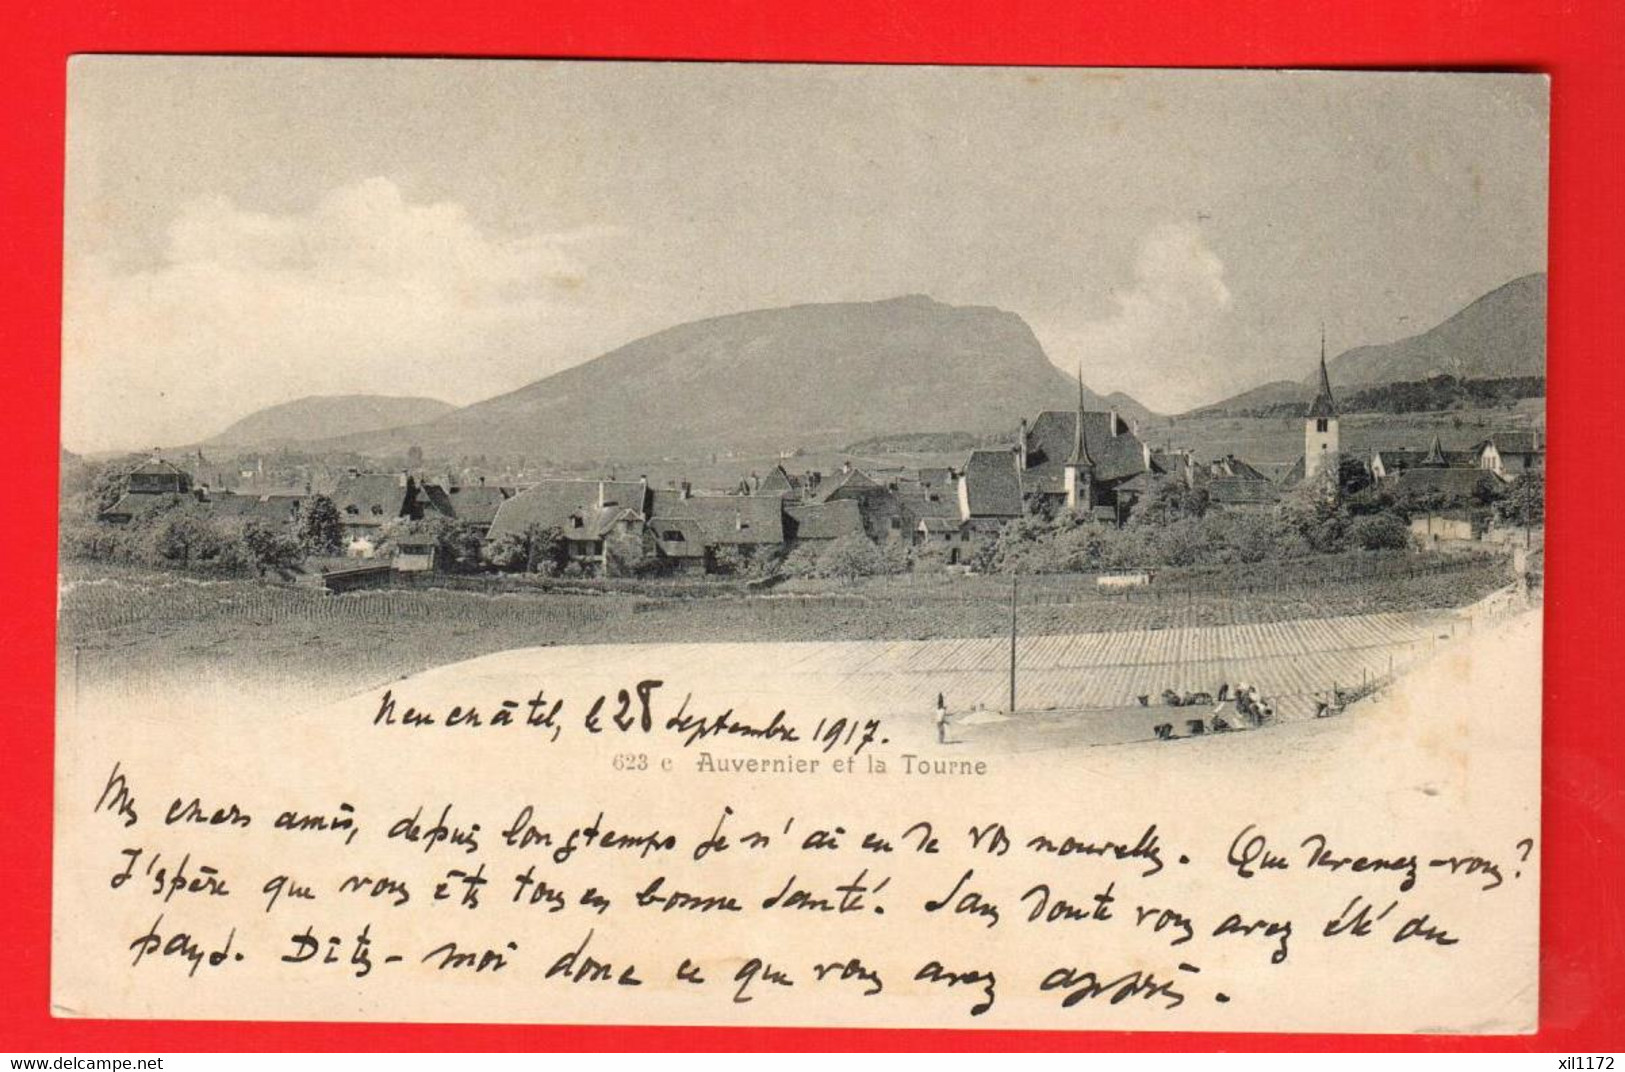 Neuchâtel, le 28 septembre 1917.
623 c Auvernier et la Tourne
Mes chers amis, depuis longtemps je n'ai eu de vos nouvelles. Que devenez-vous?
J'espère que vous êtes tous en bonne santé. Sans doute vous avez été au
pays. Dites-moi donc ce que vous avez appris.
www.delcampe.net
xil1172